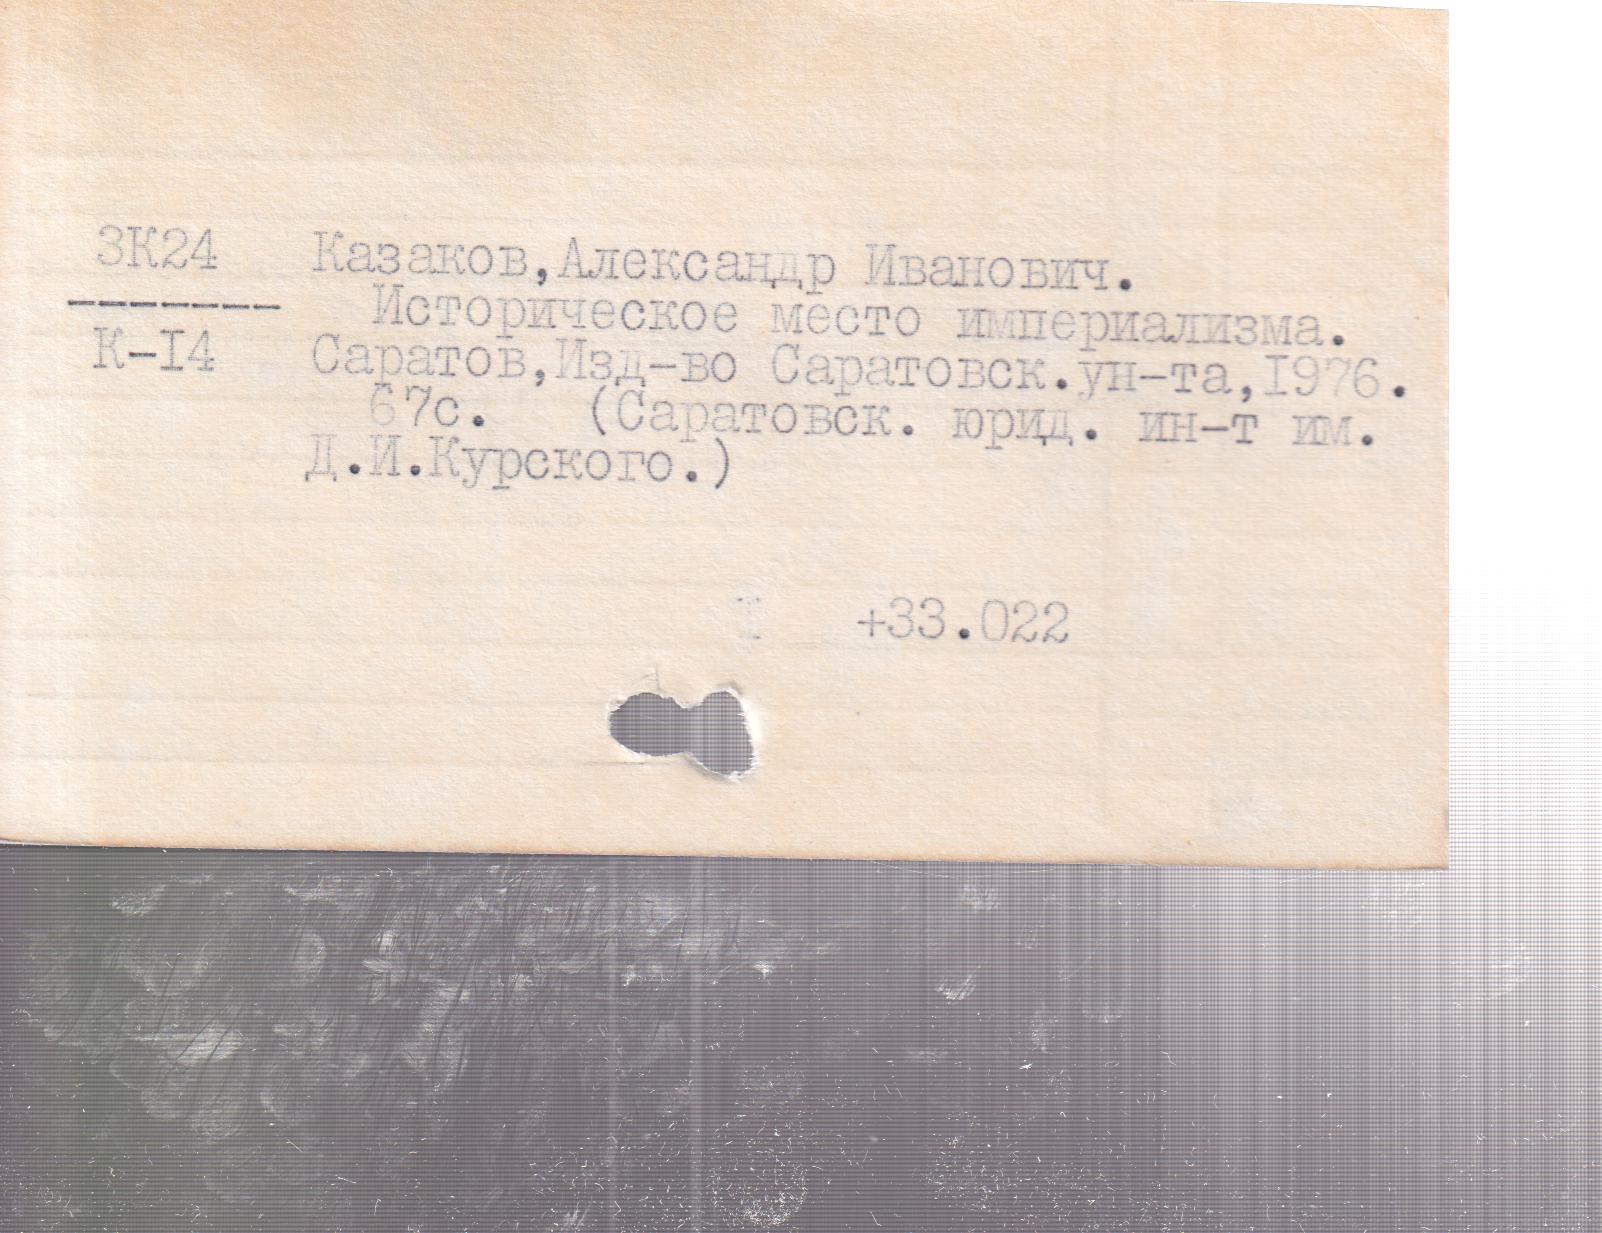 3К24 Казаков,Александр Иванович.
------- Историческое место империализма.
К-I4 Саратов,Изд-во Саратовск.ун-та,I976.
67с. (Саратовск. юрид. ин-т им.
Д.И.Курского.)
I +33.022